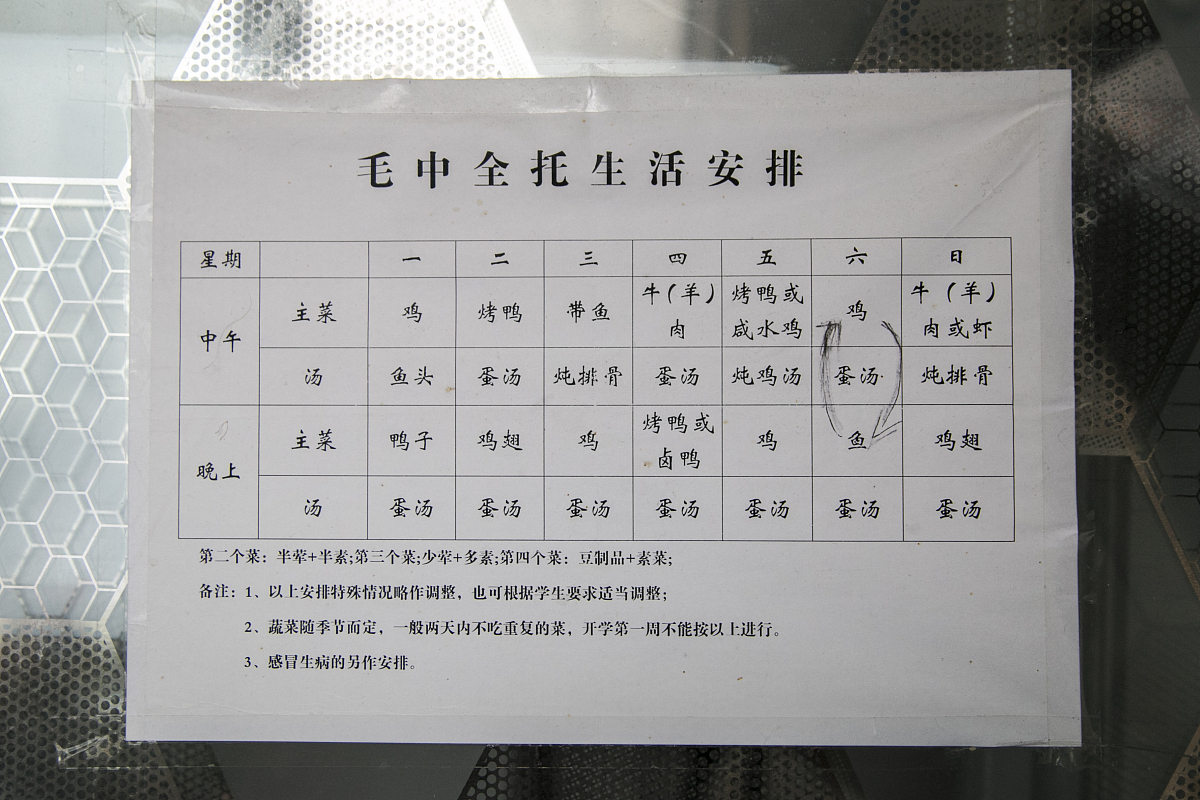 毛中全托生活安排
星期 一 二 三 四 五 六 日
中午 主菜 鸡 烤鸭 带鱼 牛(羊)肉 烤鸭或咸水鸡 鸡 牛(羊)肉或虾
汤 鱼头 蛋汤 炖排骨 蛋汤 炖鸡汤 蛋汤 炖排骨
晚上 主菜 鸭子 鸡翅 鸡 烤鸭或卤鸭 鸡 鱼 鸡翅
汤 蛋汤 蛋汤 蛋汤 蛋汤 蛋汤 蛋汤 蛋汤
第二个菜：半荤+半素;第三个菜;少荤+多素;第四个菜：豆制品+素菜;
备注：1、以上安排特殊情况略作调整，也可根据学生要求适当调整；
2、蔬菜随季节而定，一般两天内不吃重复的菜，开学第一周不能按以上进行。
3、感冒生病的另作安排。